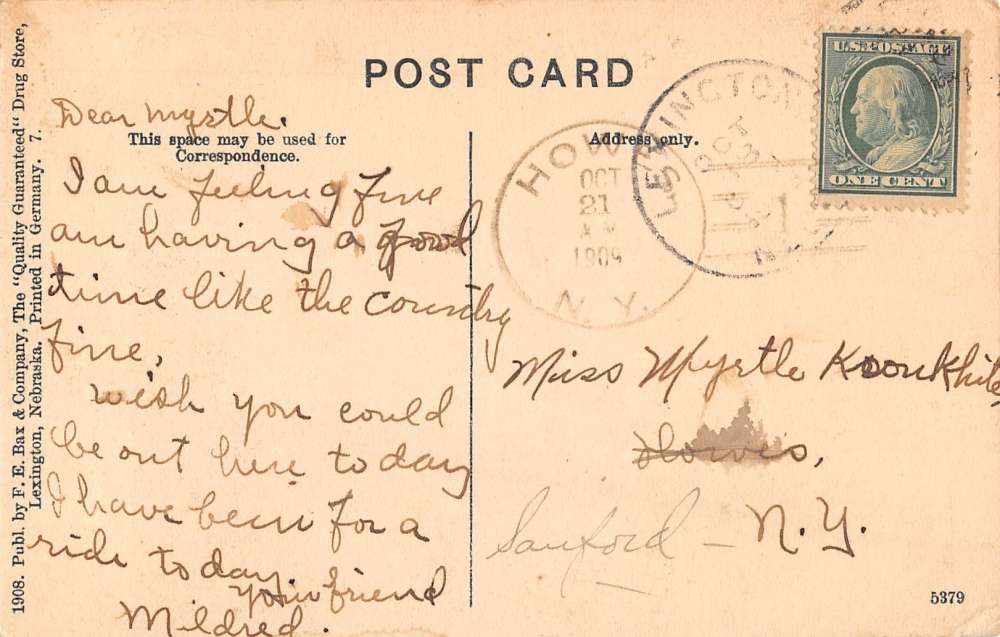 POST CARD
This space may be used for
Correspondence.
Address only.
U.S. POSTAGE
ONE CENT
LEXINGTON
OCT
HOW
OCT
21
1909
N.Y.
Dear Myrtle.
I am feeling fine
am having a good
time like the country
fine,
wish you could
be out here to day
I have been for a
ride to day.
your friend
Mildred.
Miss Myrtle Kronkhite,
N.Y.
Sanford
5379
1908. Publ. by F. E. Bax & Company, The "Quality Guaranteed" Drug Store,
Lexington, Nebraska. Printed in Germany. 7.